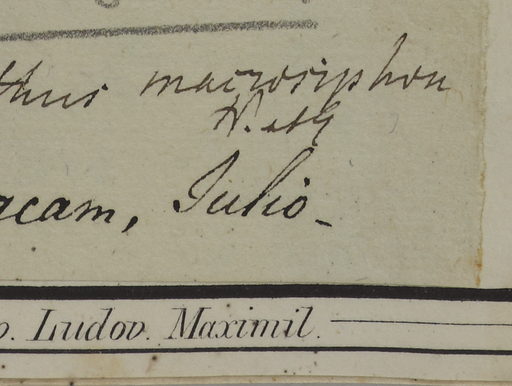 thus macrosiphon
acam, Julio
o. Ludov. Maximil.